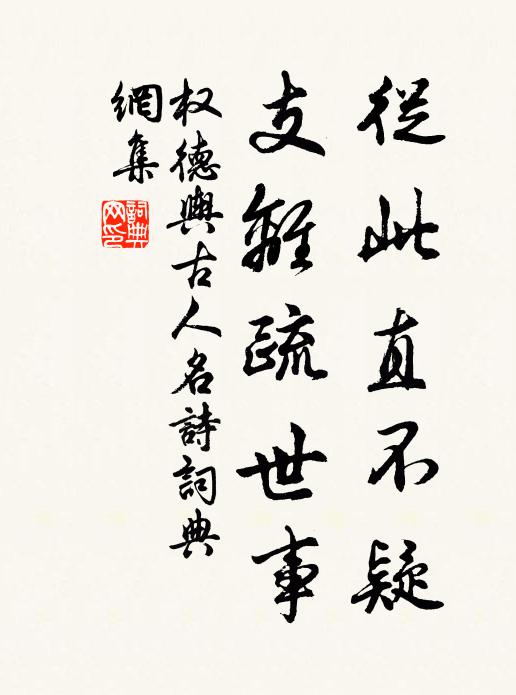 從此直不疑
支離疏世事
权德輿古人名詩詞典
網集
詞典
网印